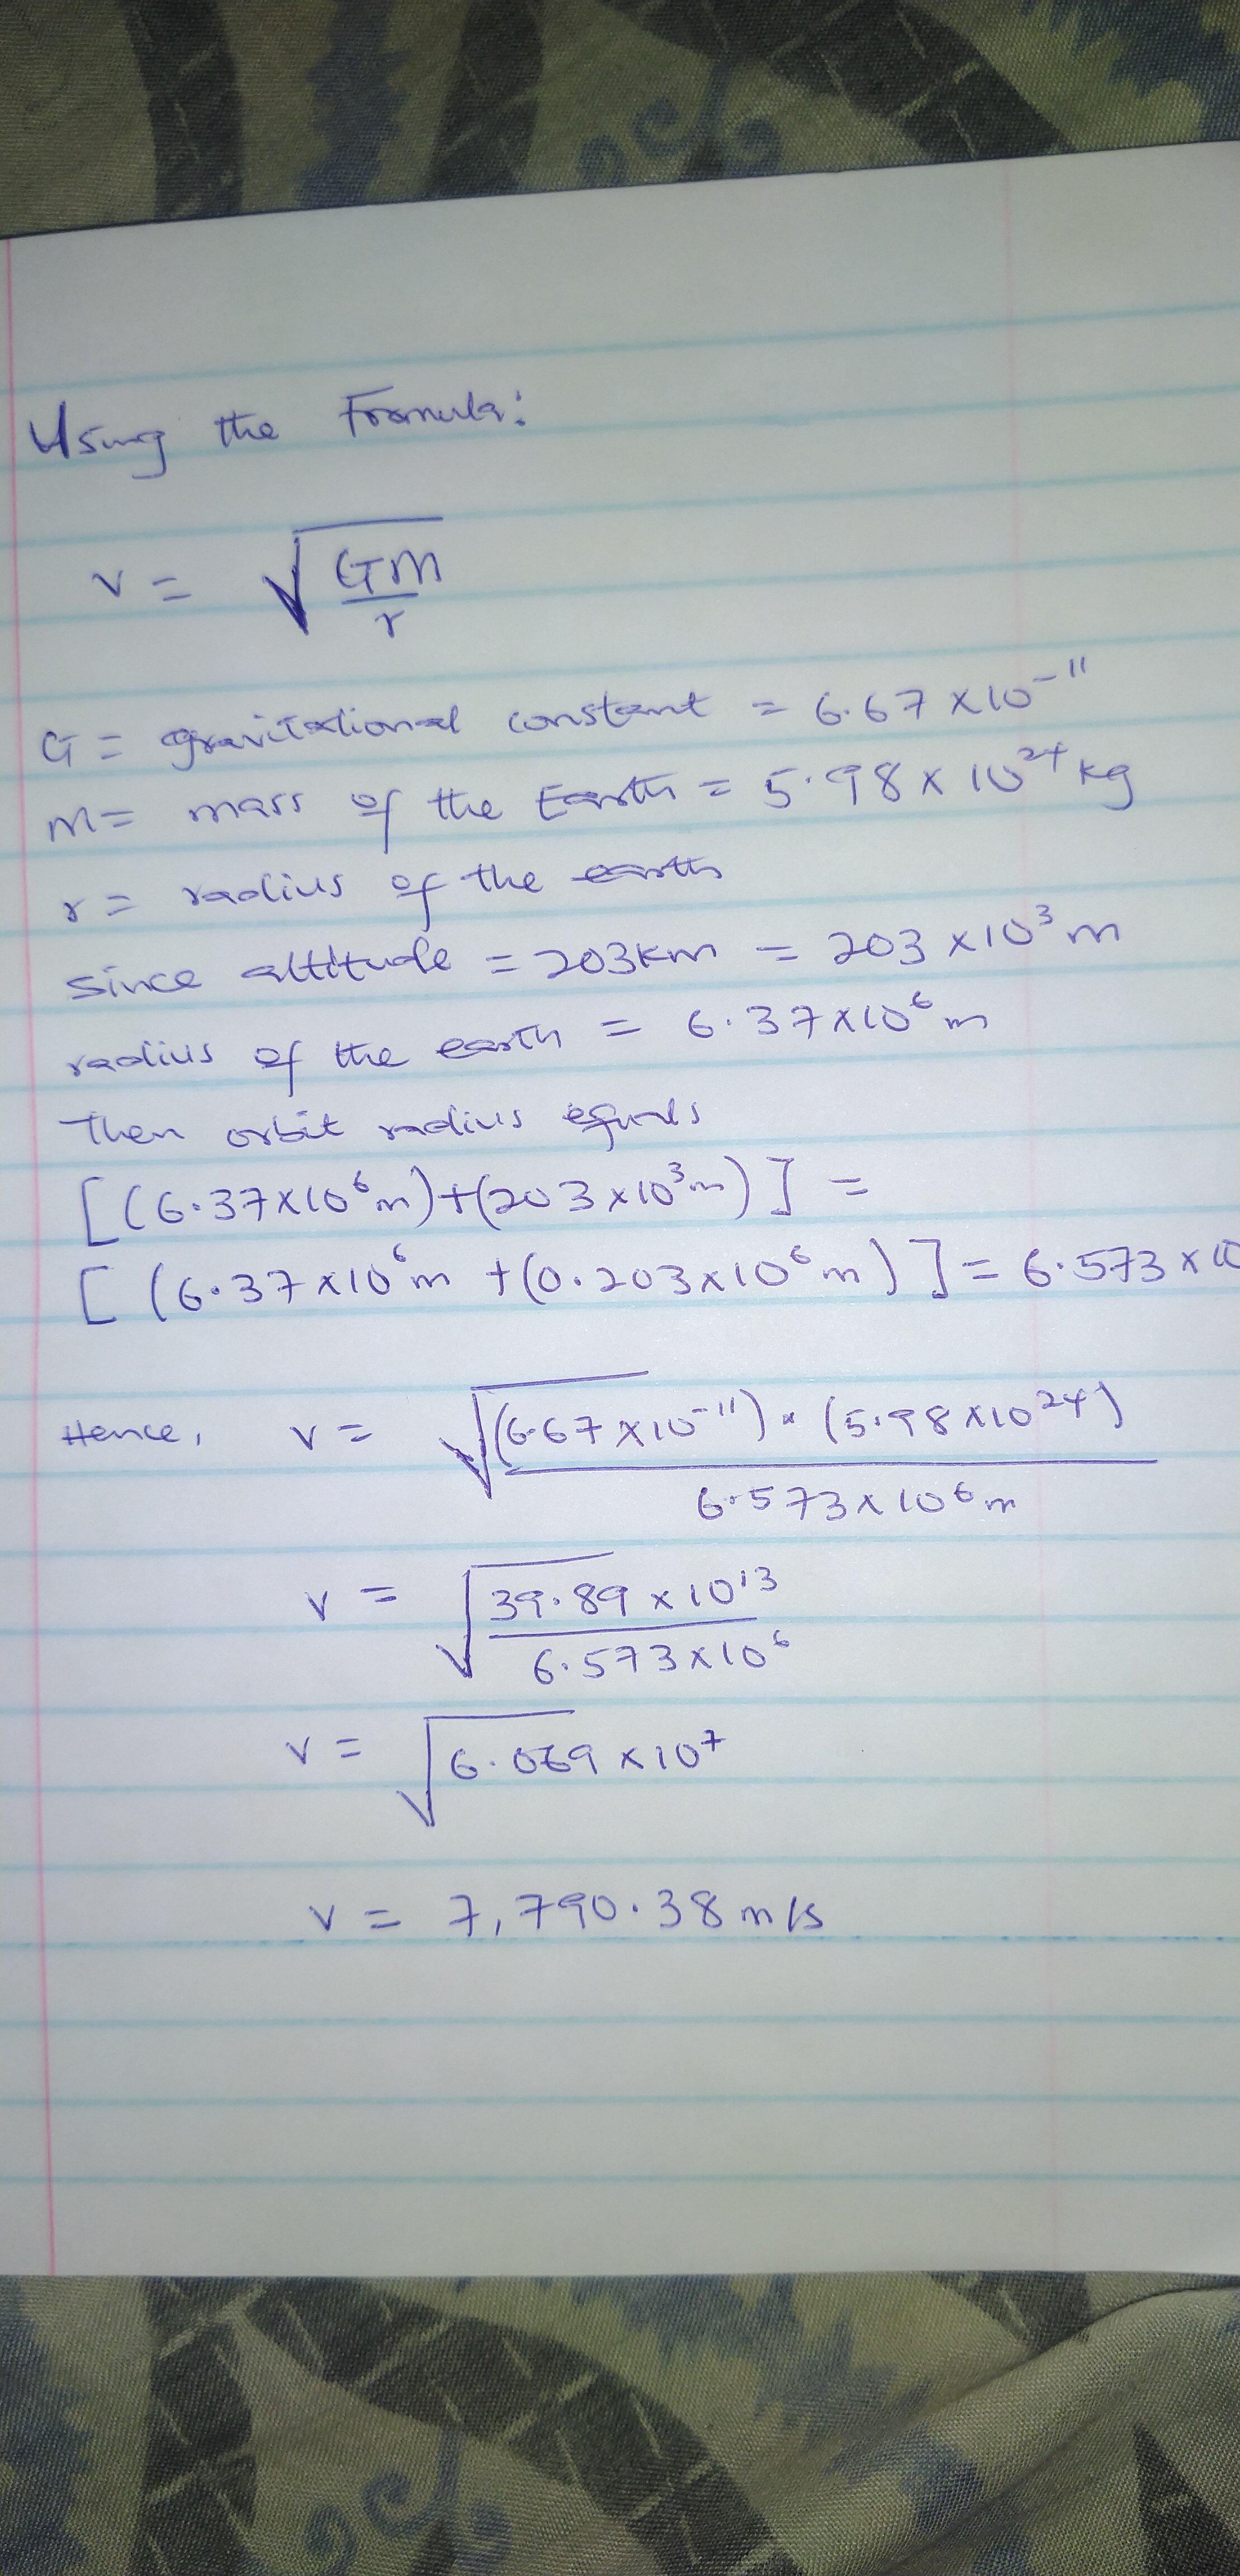 Using the Formula:
v = √GM/r
G = gravitational constant = 6.67 x 10⁻¹¹
M = mass of the Earth = 5.98 x 10²⁴ kg
r = radius of the earth
since altitude = 203km = 203 x 10³ m
radius of the earth = 6.37 x 10⁶ m
Then orbit radius equals
[(6.37 x 10⁶ m) + (203 x 10³ m)] =
[(6.37 x 10⁶ m + (0.203 x 10⁶ m)] = 6.573 x 10
Hence, v = √(6.67 x 10⁻¹¹) x (5.98 x 10²⁴) / 6.573 x 10⁶ m
v = √39.89 x 10¹³ / 6.573 x 10⁶
v = √6.069 x 10⁷
v = 7,790.38 m/s